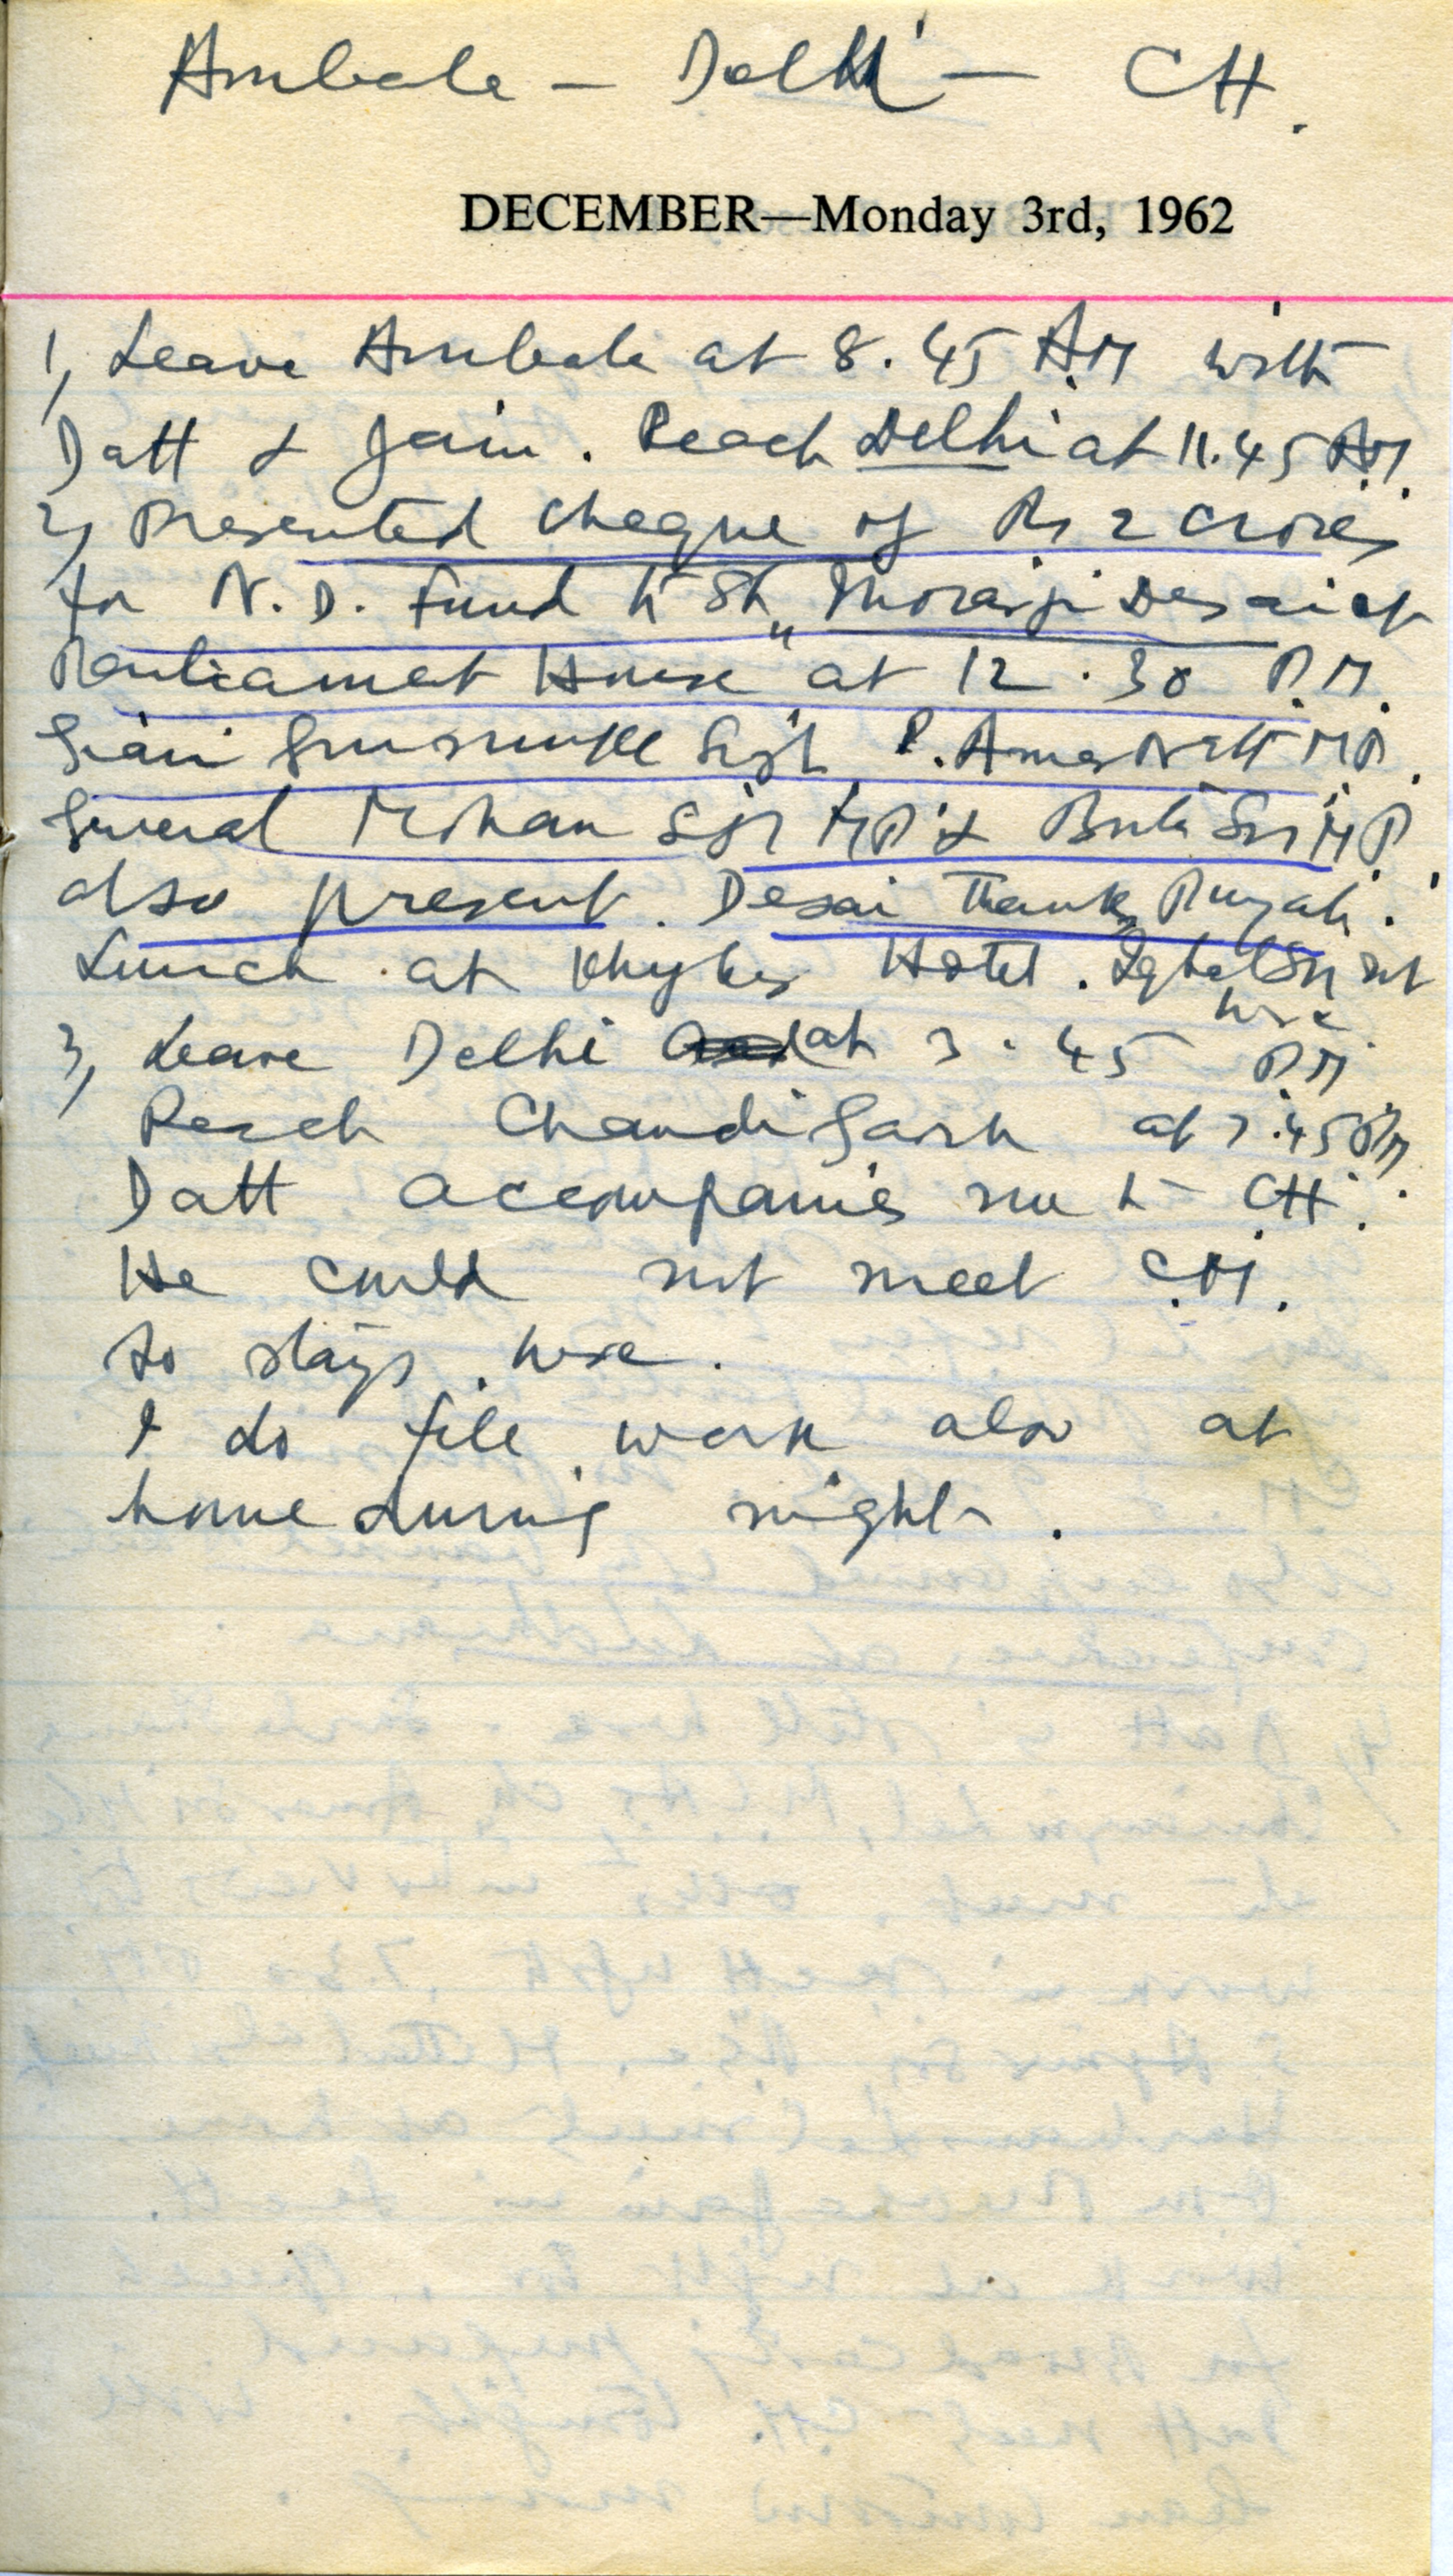 Ambala — Delhi — CH.
DECEMBER—Monday 3rd, 1962
1, Leave Ambala at 8.45 A.M with
Datt & Jain. Reach Delhi at 11.45 A.M.
2, Presented cheque of Rs 2 crores
for N.D. Fund to Sh Morarji Desai at
"Parliament House" at 12.30 P.M.
Giani Gurmukh Singh P. Amar Nath MP.
General Mohan Singh MP & Buta Singh MP
also present. Desai Thanks Punjab.
Lunch at Khyber Hotel. Iqbal Singh not
here
3, Leave Delhi at 3.45 P.M
Reach Chandigarh at 7.45 PM.
Datt accompanies me to CH.
He could not meet C.M.
so stays here.
I do file work also at
home during night.